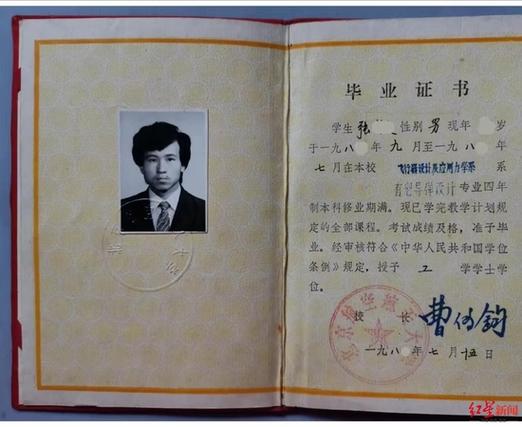 毕业证书
学生 张 性别 男 现年 岁
于一九八 年 九 月至一九八 年
七 月在本校 飞行器设计及应用力学系 系
有翼导弹设计 专业四年
制本科修业期满。现已学完教学计划规
定的全部课程。考试成绩及格，准予毕
业。经审核符合《中华人民共和国学位
条例》规定，授予 工 学学士学
位。
校 长 曹传钧
一九八 年 七 月 十五 日
北京航空航天大学
红星新闻